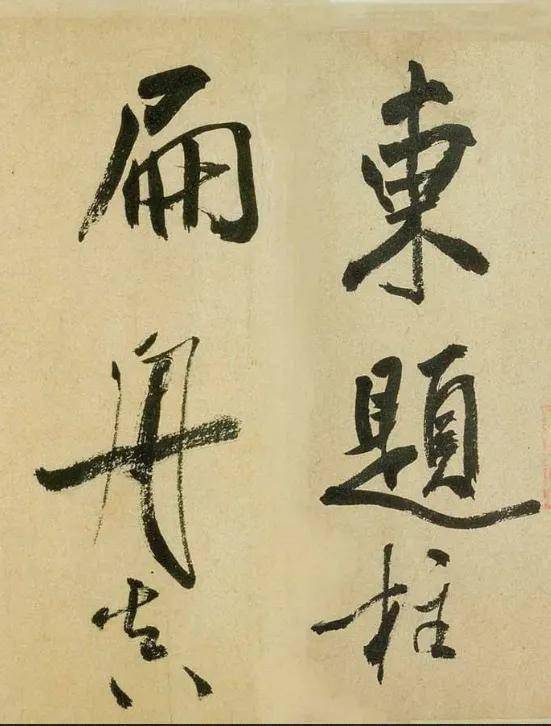 東題柱
扁舟真